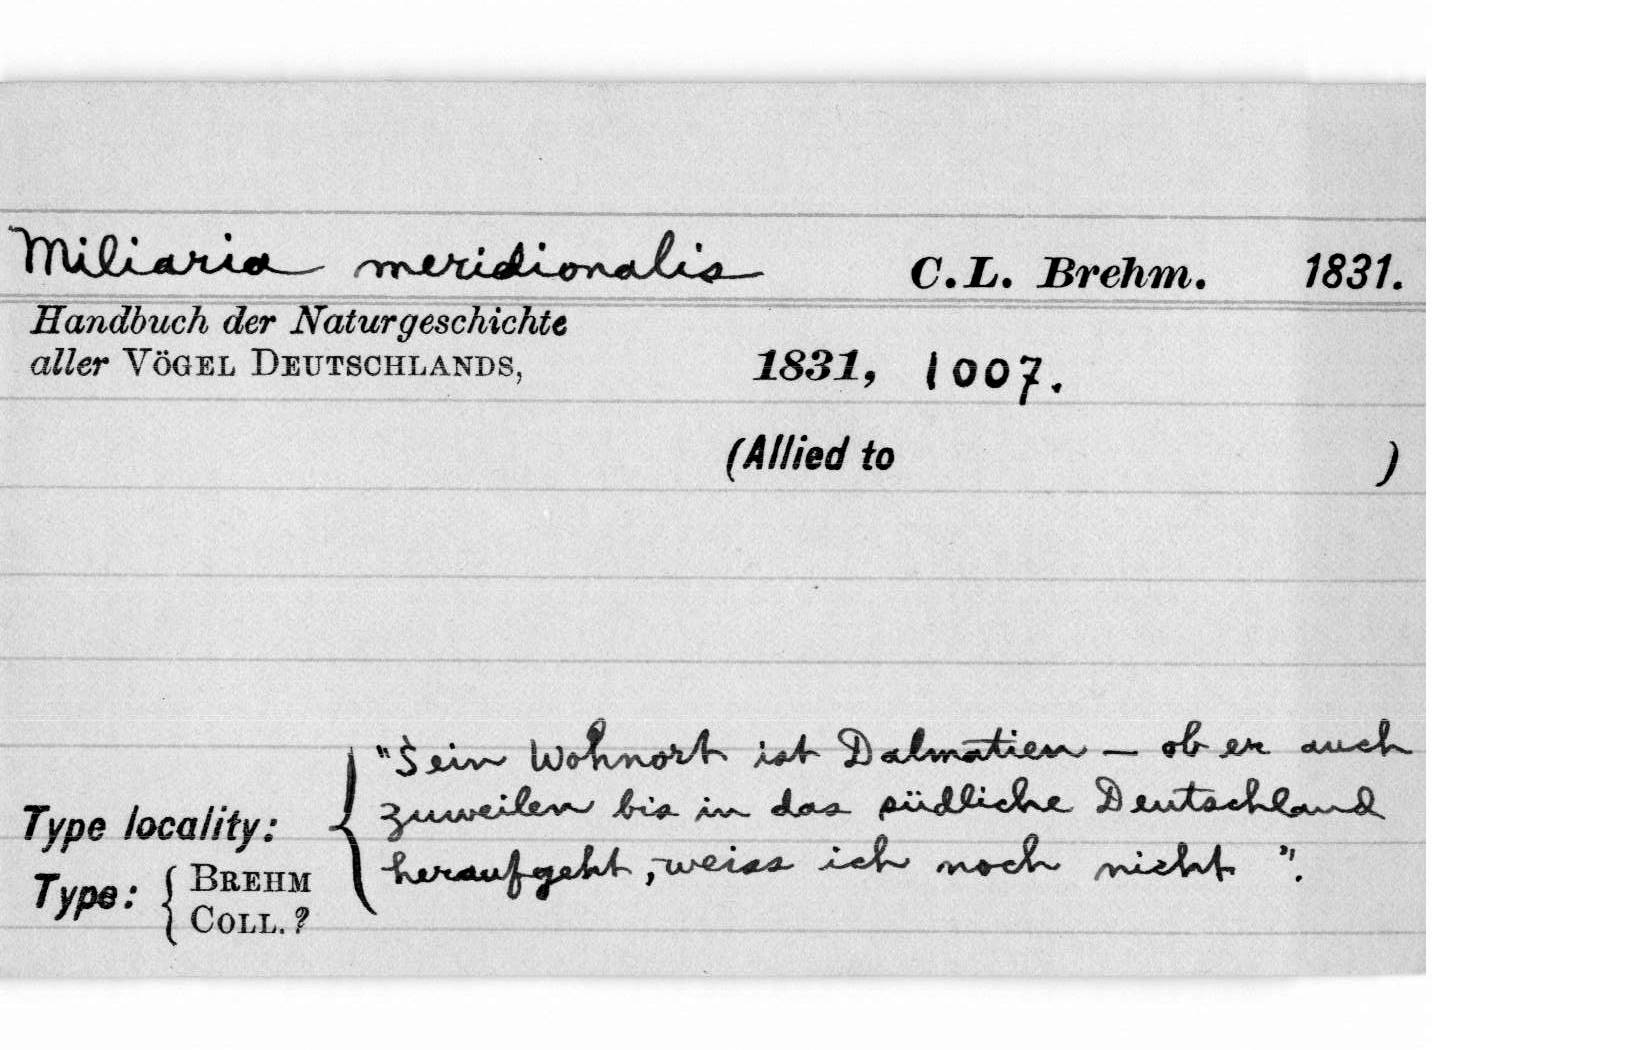 Miliaria meridionalis C.L. Brehm. 1831.
Handbuch der Naturgeschichte
aller VÖGEL DEUTSCHLANDS, 1831, 1007.
(Allied to )
"Sein Wohnort ist Dalmatien — ob er auch
zuweilen bis in das südliche Deutschland
Type locality:
heraufgeht, weiss ich noch nicht".
Type: { BREHM
COLL. ?